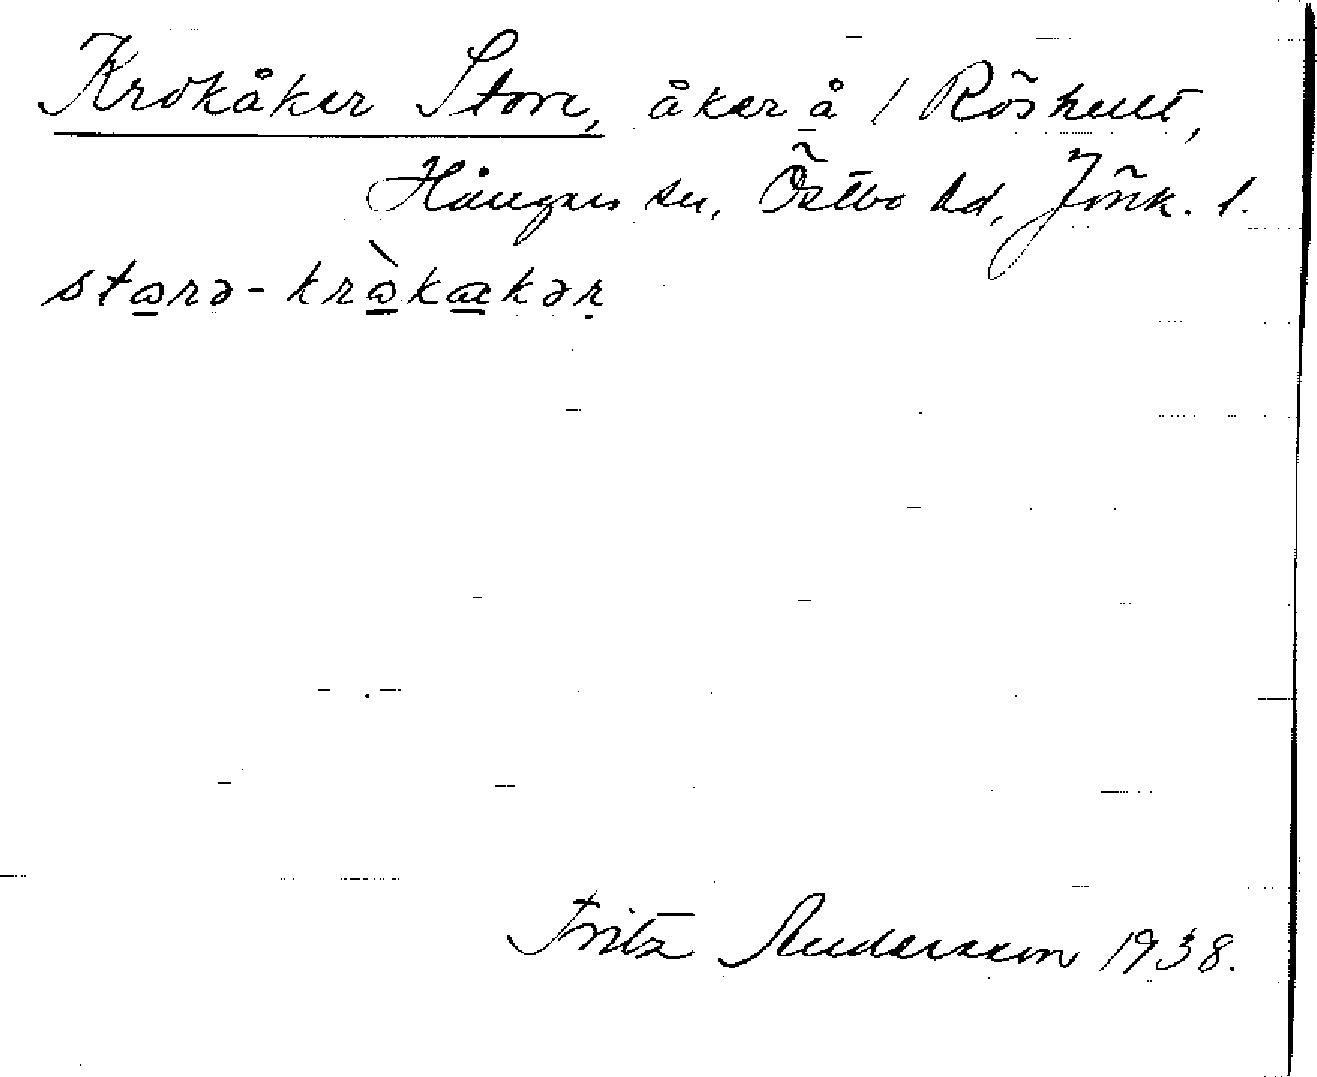 Krokåker Store, åker å 1 Röshult,
Hånger sn, Östbo hd, Jönk. l.
starə-kràkækər
Fritz Andersson 1938.